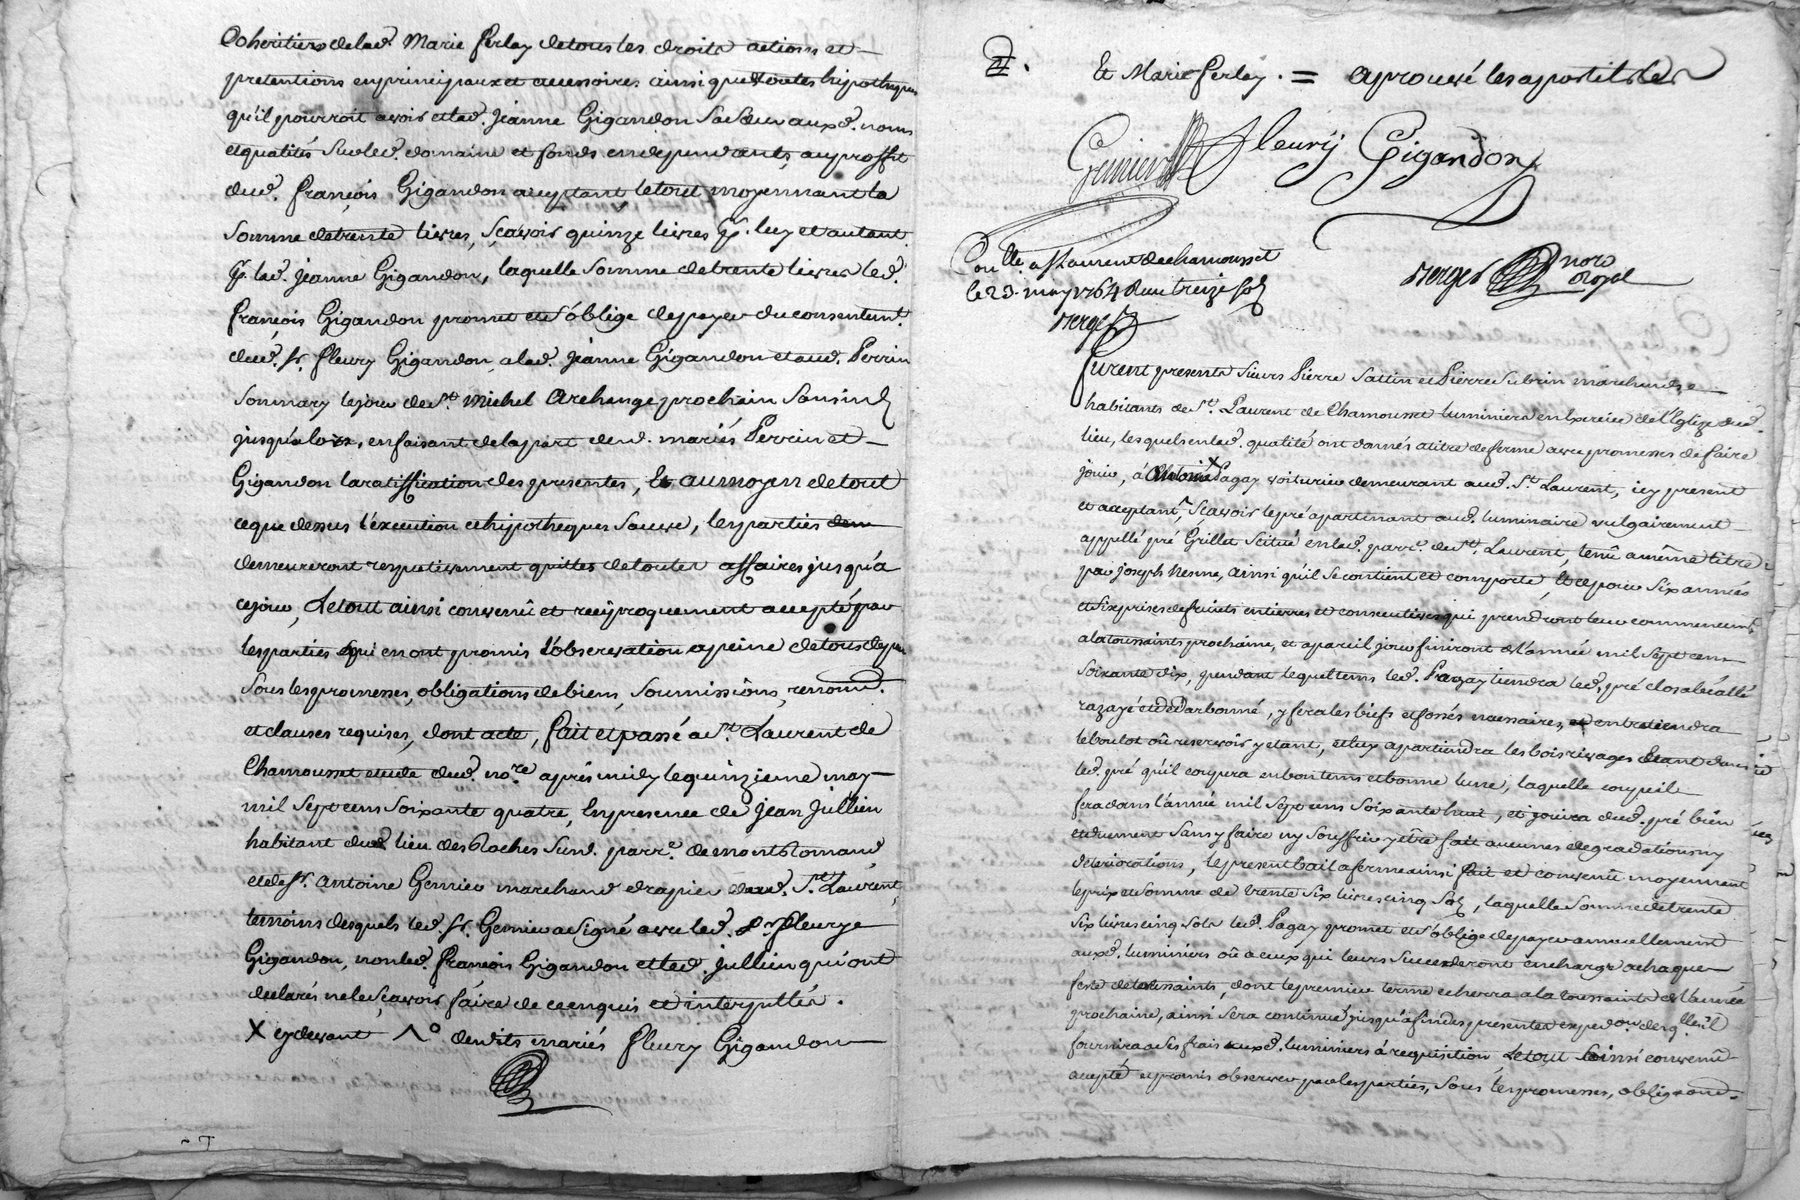 Coheritiers de lad. Marie Ferlay de tous les droits actions et
pretentions en principaux et accessoires ainsi que toutes hipotheques
qu'il pourroit avoir et lad. Jeanne Gigandon sa sœur auxd. noms
et qualités sur led. domaine et fonds en dependants, au proffit
dud. françois Gigandon acceptant, le tout moyennant la
somme de trente livres, sçavoir quinze livres pr. luy et autant
pr. lad. Jeanne Gigandon, laquelle somme de trente livres led.
françois Gigandon promet et s'oblige de payer du consentemt.
dud. sr. fleury Gigandon, a lad. Jeanne Gigandon et aud. Perrin
son mary le jour de st. Michel Archange prochain sans
jusqu'alors, en faisant de la part desd. mariés Perrin et
Gigandon la ratiffication des presentes, Et au moyen de tout
ce que dessus l'execution et hipotheques sauve, les parties
demeureront respectivement quittes de toutes affaires jusqu'a
ce jour, Le tout ainsi convenû et reciproquement accepté par
les parties qui en ont promis l'observation a peine de tous depens
sous les promesses, obligations de biens, soumissions, renonc.
et clauses requises, dont acte, fait et passé a st. Laurent de
Chamousset etude dud. nore. aprés midy le quinzieme may
mil sept cens soixante quatre, En presence de Jean Jullien
habitant du lieu des Roches susd. parre. de montRomand,
et de sr. Antoine Genrier marchand drapier dud. st. Laurent,
temoins desquels led. sr. Genrier a signé avec led. sr. fleury
Gigandon, non led. françois Gigandon et led. Jullien qui ont
declarés ne le sçavoir faire de ce enquis et interpellés.
X cy devant ^° desdits mariés fleury Gigandon
Et Marie Ferlay. = aprouvé les apostilles
Genrier fleury Gigandon
Coullé a st Laurent de chamousset
le 23. may 1764 Reçu treize sols
Verger
Verger nore Royal
Furent presents sieurs Pierre Sattin et Pierre Subrin marchands
habitants de st. Laurent de Chamousset luminiers en Exercice de l'Eglize dud.
lieu, lesquels en lad. qualité ont donnés a titre de ferme avec promesses de faire
jouir, á Antoine Pagay voiturier demeurant aud. st. Laurent, icy present
et acceptant, Sçavoir le pré apartenant aud. luminaire vulgairement
appellé pré Grillet scitué en lad. parre. de st. Laurent, tenû a même titre
par Joseph Nesme, ainsi qu'il se contient et comporte, Et ce pour six années
et six prises de fruits entieres et consecutives qui prendront leur commencemt.
a la toussaints prochaine, et a pareil jour finiront de l'année mil sept cens
soixante dix, pendant lequel tems led. Pagay tiendra led. pré clos a béallé
razayé et , y fera les biefs et fossés necessaires, entretiendra
le boulot où reservoir y etant, et luy apartiendra les bois rivages etant dans
led. pré qu'il coupera en bon tems et bonne lune, laquelle coupe il
fera dans l'année mil sept cens soixante huit, et jouira dud. pré bien
et duement sans y faire ny souffrir y être fait aucunes degradations ny
deteriorations, le present bail a ferme ainsi fait et convenû moyennant
le prix et somme de trente six livres cinq sols, laquelle somme de trente
six livres cinq sols led. Pagay promet et s'oblige de payer annuellement
auxd. luminiers où a ceux qui leurs succederont en charge a chaque
feste de toussaints, dont le premier terme echerra a la toussaints de l'année
prochaine, ainsi sera continué jusqu'a fin des presentes expedon. desqlles. il
fournira a ses frais auxd. luminiers á requisition Le tout ainsi convenû
accepté et promis observer par les parties, sous les promesses, oblig. renonc.